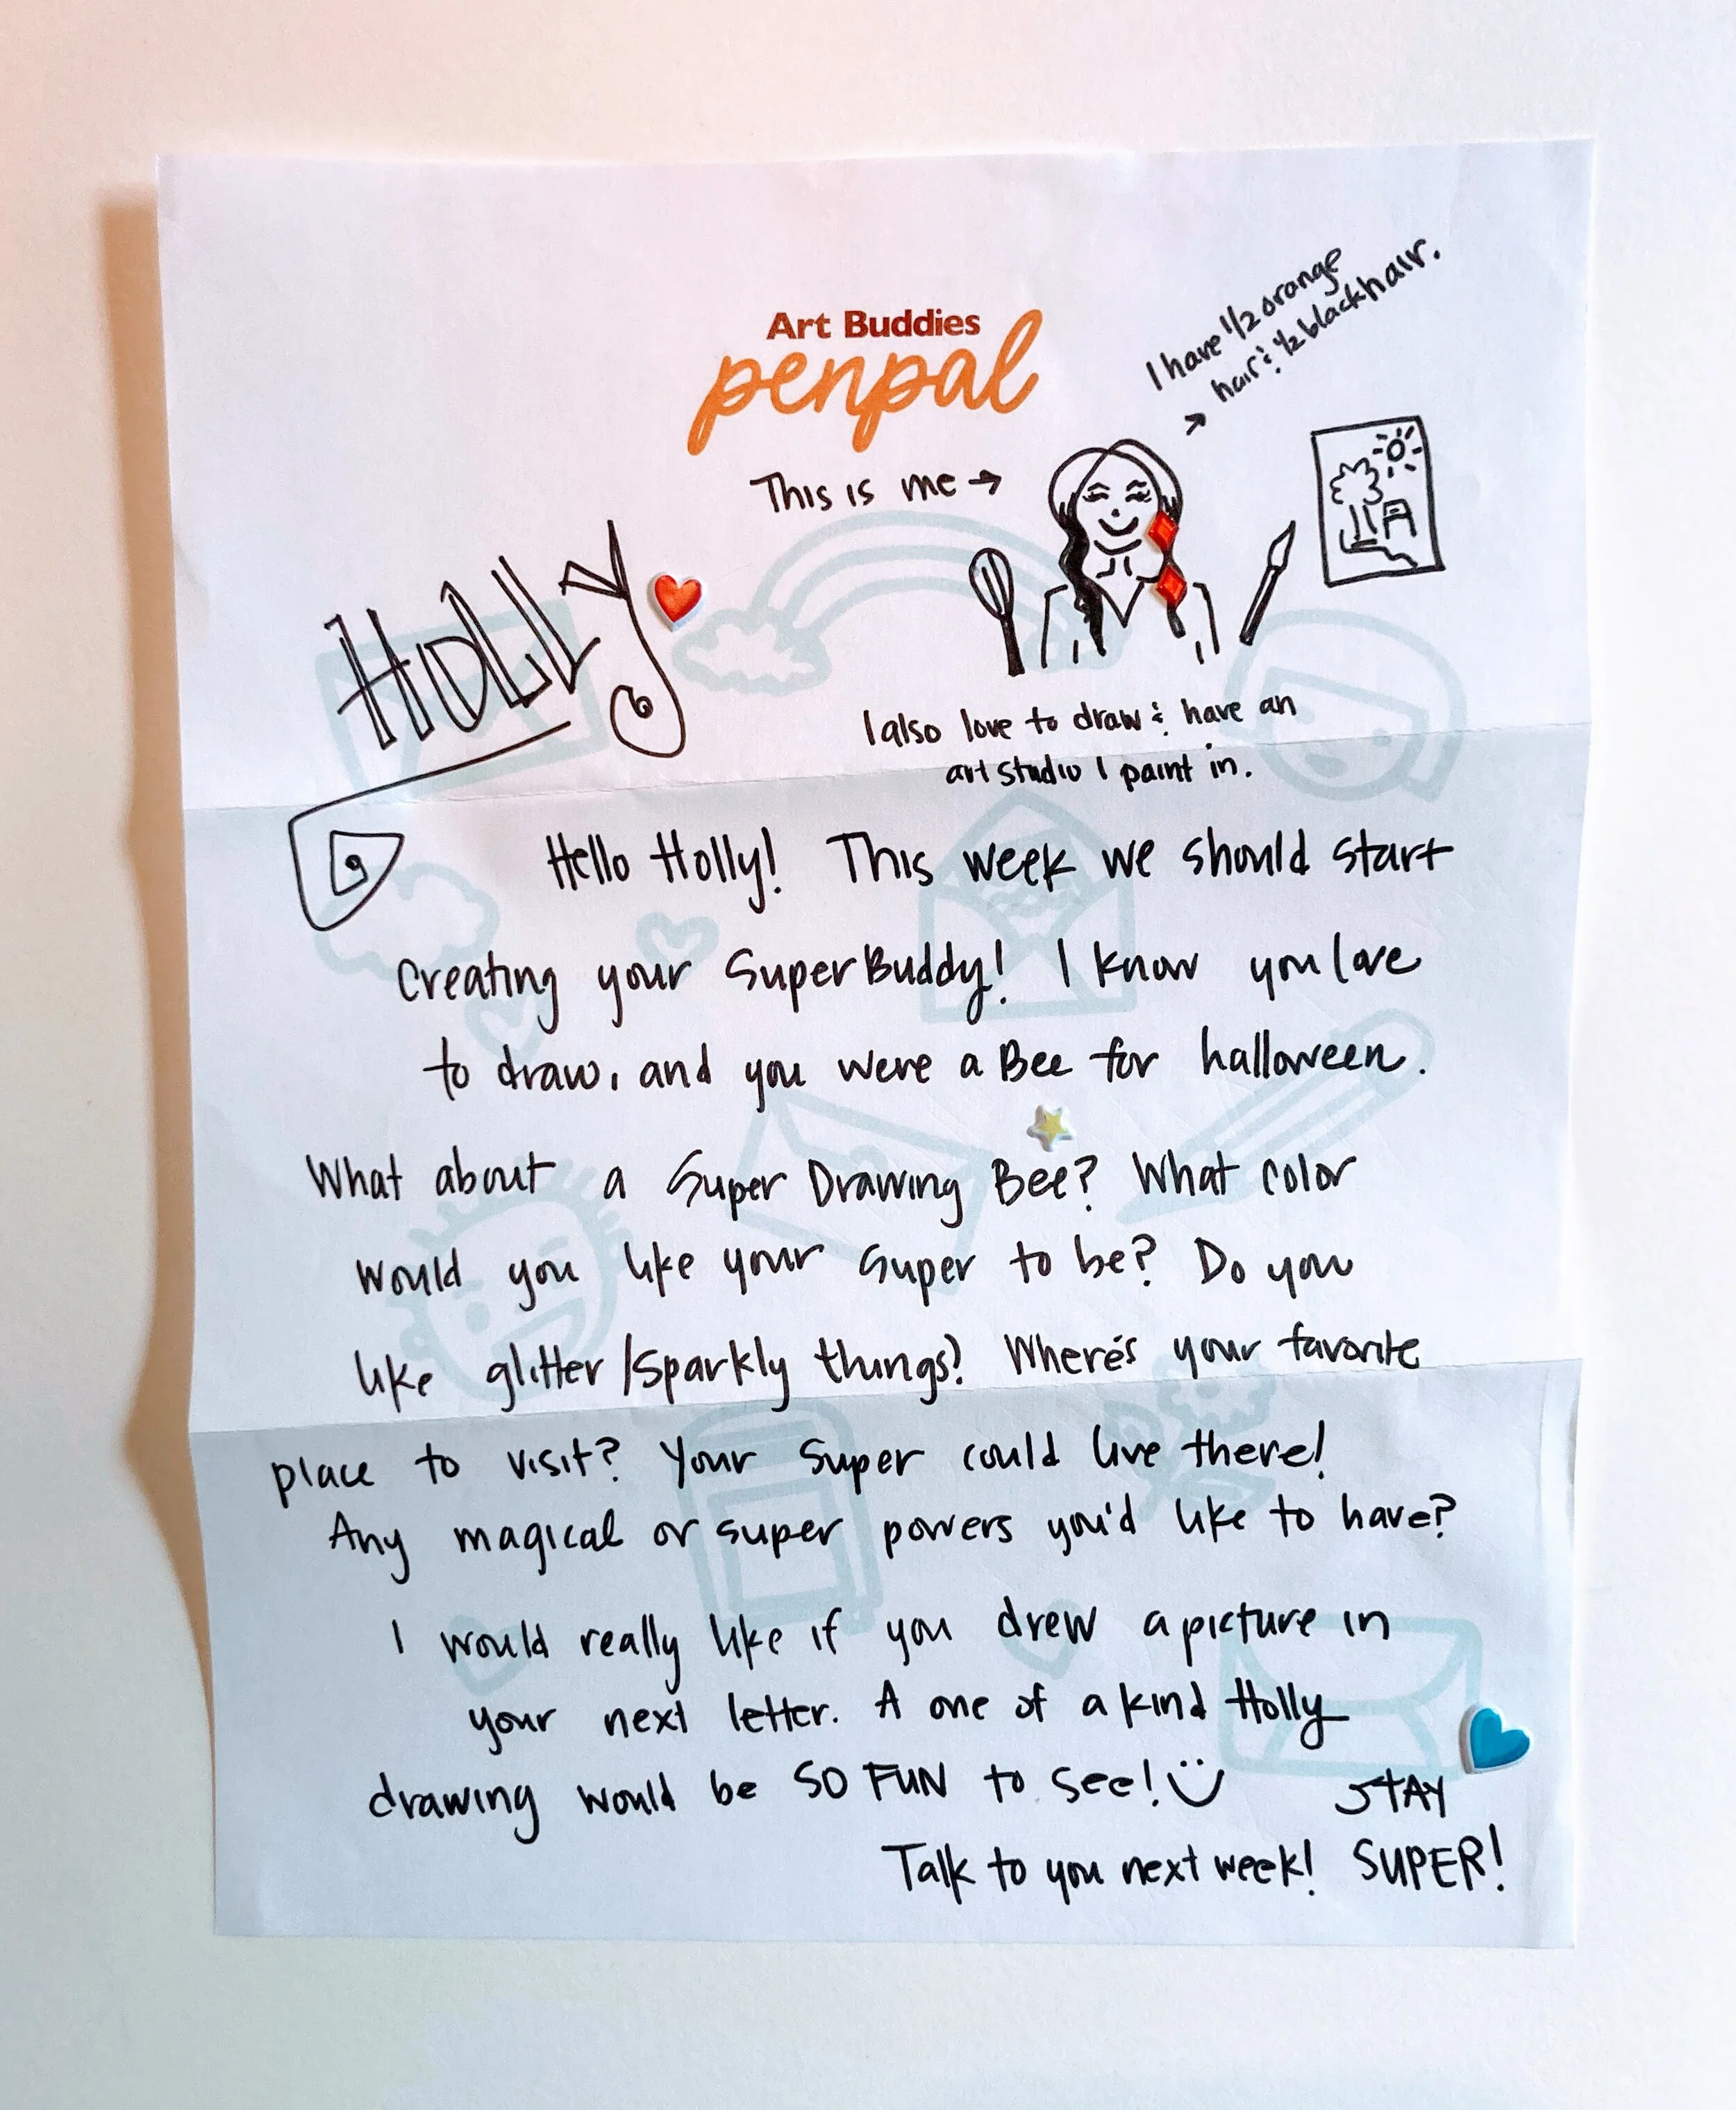 Art Buddies
penpal
I have 1/2 orange
hair & 1/2 black hair.
This is me →
HOLLY
I also love to draw & have an
art studio I paint in.
Hello Holly! This week we should start
Creating your SuperBuddy! I know you love
to draw, and you were a Bee for halloween.
What about a Super Drawing Bee? What color
would you like your Super to be? Do you
like glitter/sparkly things? Where's your favorite
place to visit? Your Super could live there!
Any magical or super powers you'd like to have?
I would really like if you drew a picture in
your next letter. A one of a kind Holly
drawing would be SO FUN to see!
STAY
Talk to you next week! SUPER!